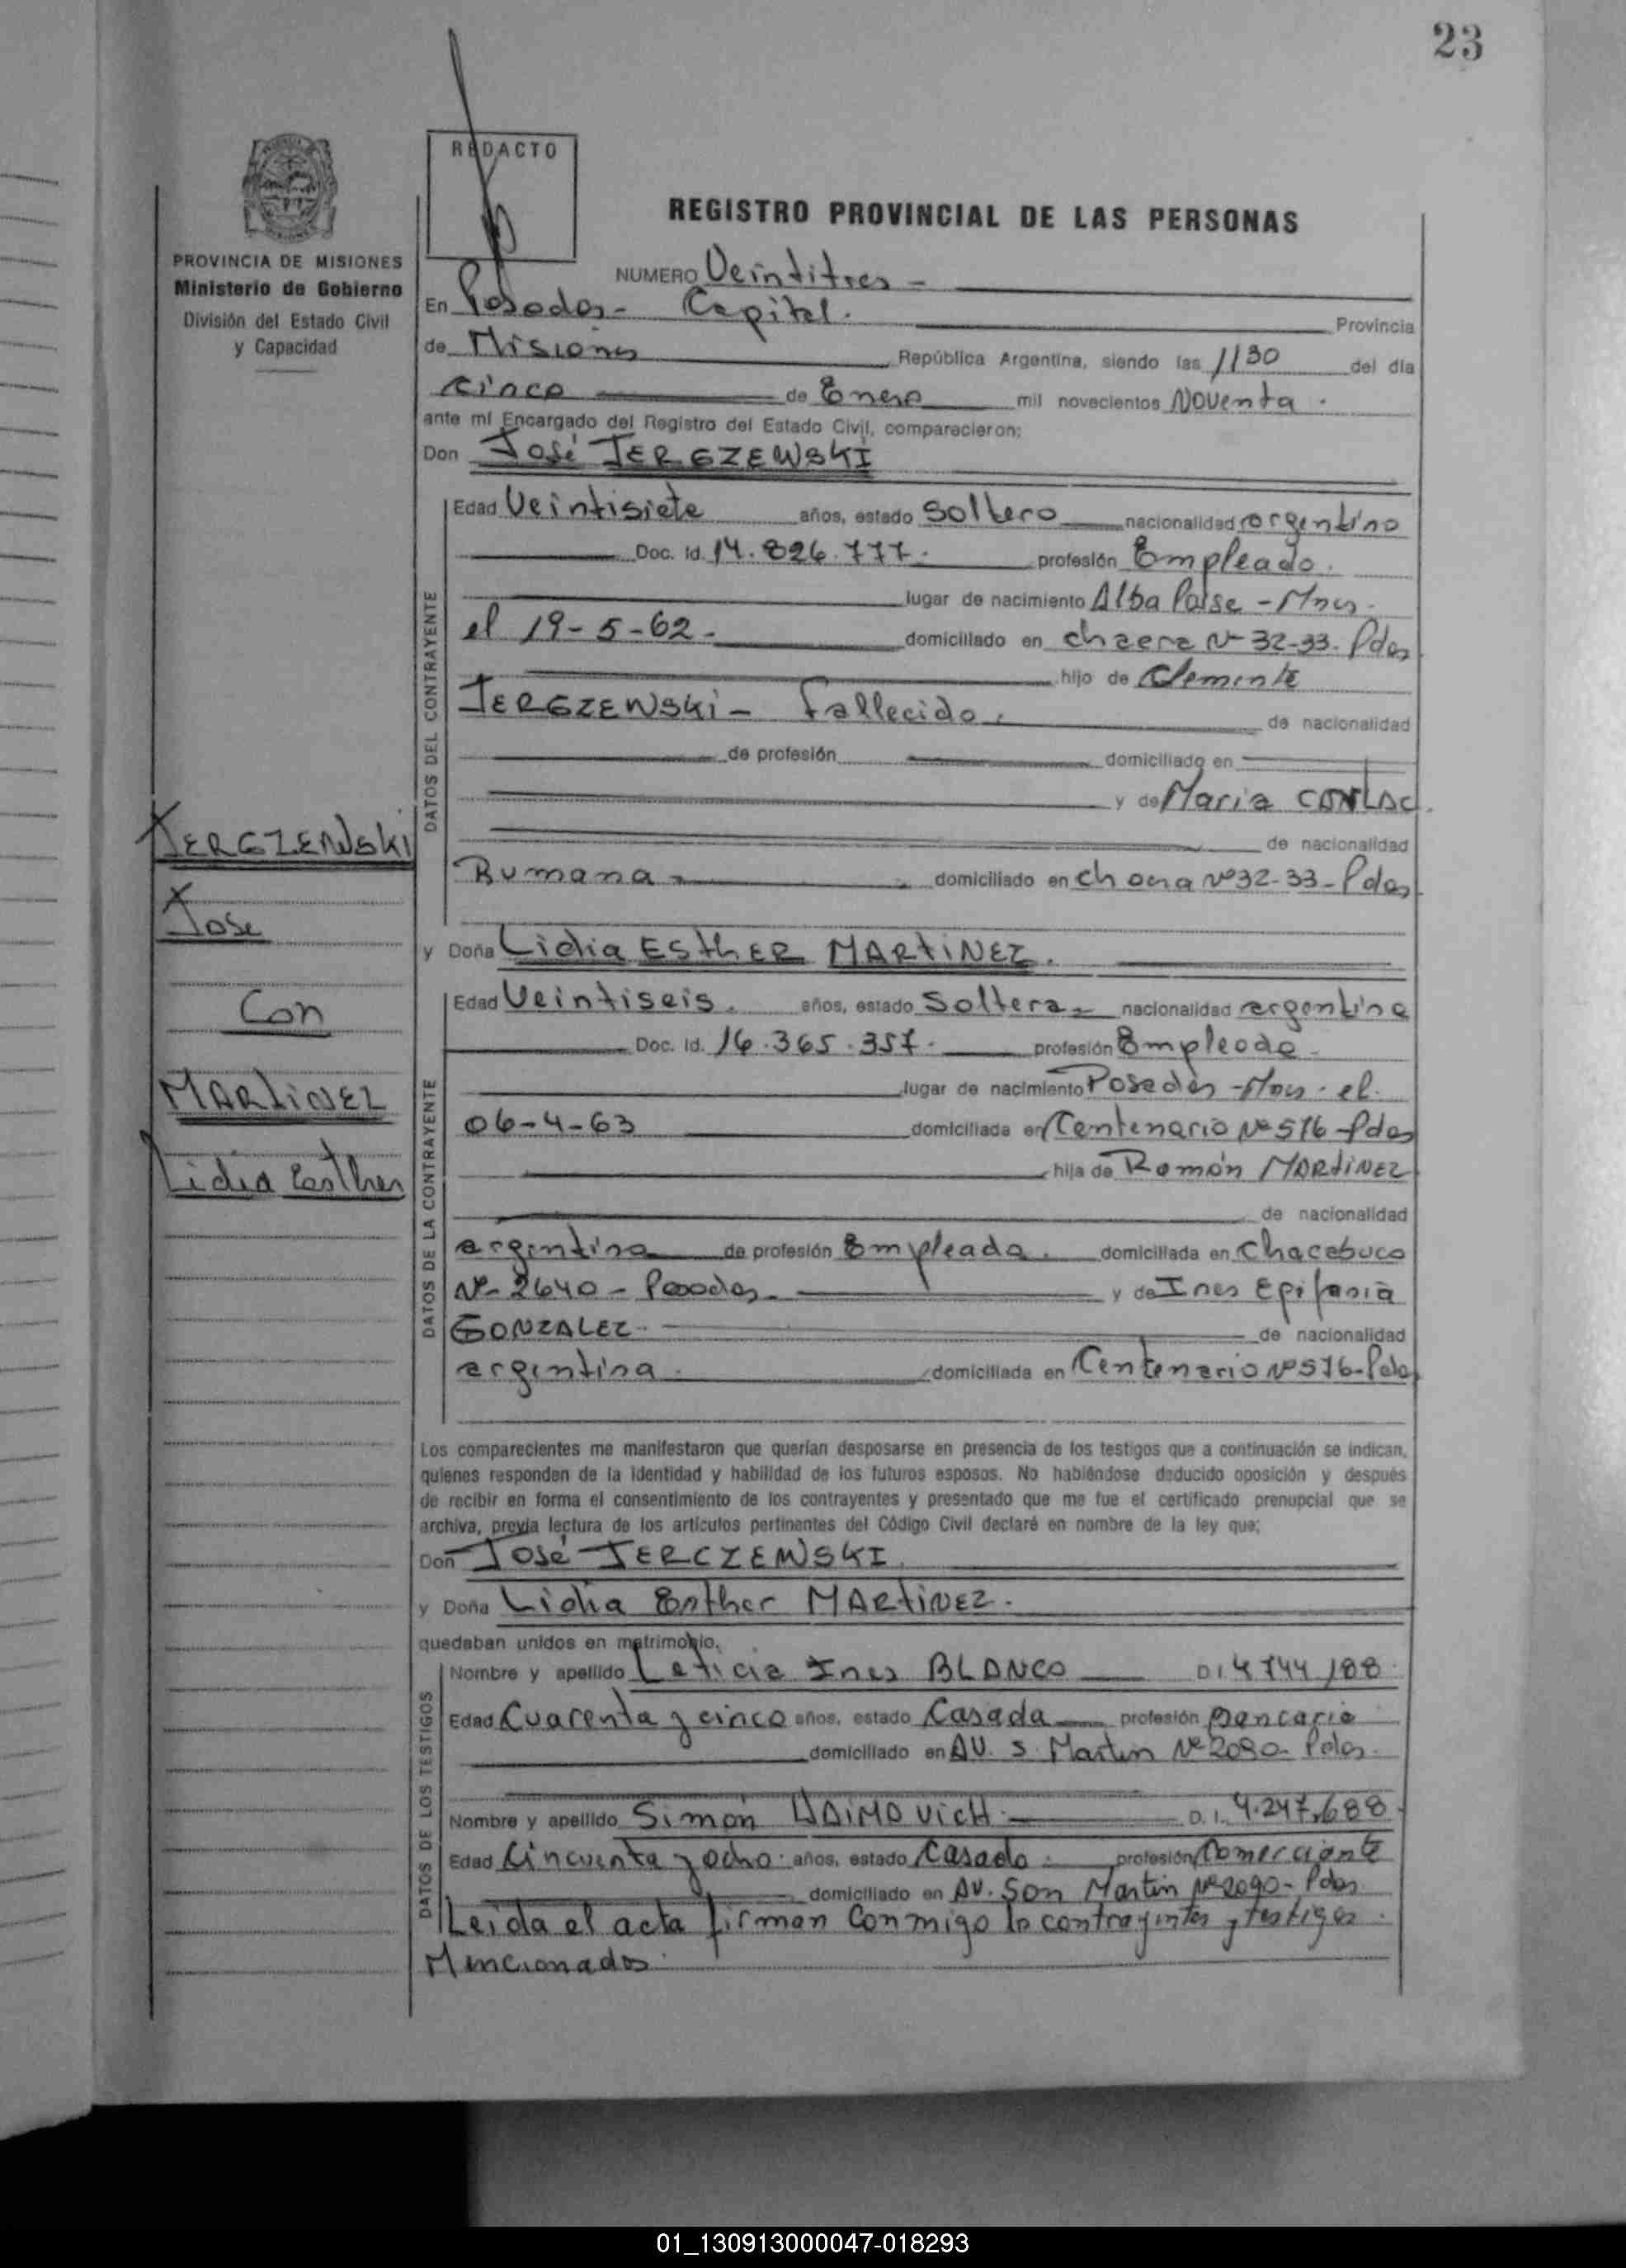 23
REDACTO
REGISTRO PROVINCIAL DE LAS PERSONAS
PROVINCIA DE MISIONES
Ministerio de Gobierno
División del Estado Civil
y Capacidad
NUMERO Veintitres -
En Posadas - Capital. Provincia
de Misiones República Argentina, siendo las 1130 del día
cinco de Enero mil novecientos Noventa.
ante mí Encargado del Registro del Estado Civil, comparecieron:
Don José JERCZEWSKI
DATOS DEL CONTRAYENTE
Edad Veintisiete años, estado Soltero nacionalidad argentino
Doc. Id. 14.826.777. profesión Empleado.
lugar de nacimiento Alba Posse - Mnes.
el 19-5-62- domiciliado en chacra Nº 32-33. Pdas
hijo de Clemente
JERCZEWSKi - Fallecido. de nacionalidad
de profesión domiciliado en
y de Maria
de nacionalidad
Rumana - domiciliado en chacra Nº 32-33 - Pdas
JERCZEWSKI
Jose
Con
MARTINEZ
Lidia Esther
y Doña Lidia ESTHER MARTINEZ.
DATOS DE LA CONTRAYENTE
Edad Veintiseis. años, estado Soltera - nacionalidad argentina
Doc. Id. 16.365.357. profesión Empleada
lugar de nacimiento Posadas - Mnes. el.
06-4-63 domiciliada en Centenario Nº 516 - Pdas
hija de Ramón MARTINEZ
de nacionalidad
argentina de profesión Empleado. domiciliada en Chacabuco
Nº 2640 - Posadas - y de Ines Epifania
GONZALEZ - de nacionalidad
argentina. domiciliada en Centenario Nº 516 - Pdas
Los comparecientes me manifestaron que querían desposarse en presencia de los testigos que a continuación se indican,
quienes responden de la identidad y habilidad de los futuros esposos. No habiéndose deducido oposición y después
de recibir en forma el consentimiento de los contrayentes y presentado que me fue el certificado prenupcial que se
archiva, previa lectura de los artículos pertinentes del Código Civil declaré en nombre de la ley que;
Don José JERCZEWSKI.
y Doña Lidia Esther MARTINEZ.
quedaban unidos en matrimonio.
DATOS DE LOS TESTIGOS
Nombre y apellido Leticia Ines BLANCO DI 4744188
Edad Cuarenta y cinco años, estado Casada profesión Bancaria
domiciliado en AV. S. Martin Nº 2090 Pdas.
Nombre y apellido Simón HAIMOVICH. D.I. 4.247.688
Edad Cincuenta y ocho. años, estado Casado. profesión Comerciante
domiciliado en AV. San Martin Nº 2090 - Pdas
Leida el acta firman Conmigo los contrayentes y testigos.
Mencionados.
01_130913000047-018293